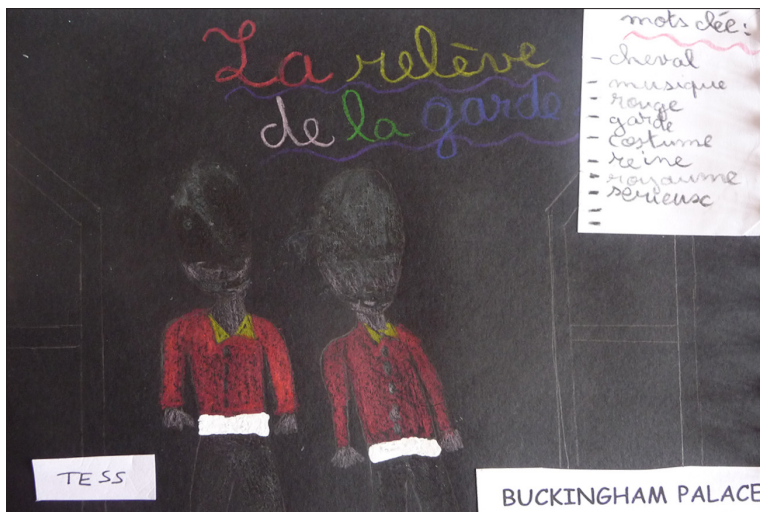 La relève
de la garde
mots clée:
- cheval
- musique
- rouge
- garde
- costume
- reine
- royaume
- serieux
-
-
TESS
BUCKINGHAM PALACE